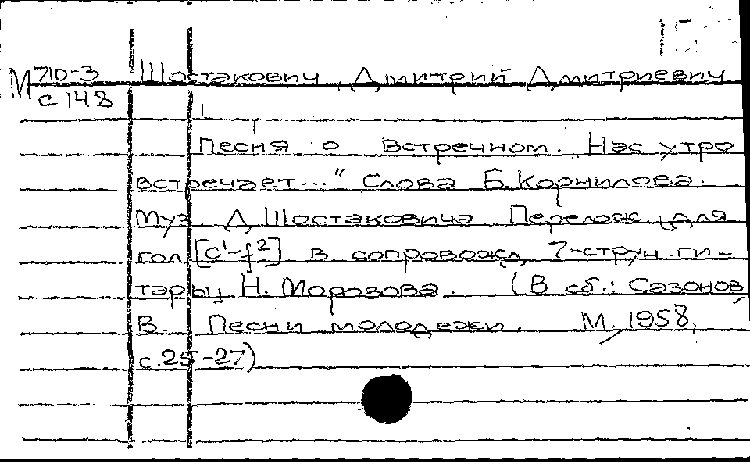 М 710-3 Шостакович, Дмитрий Дмитриевич
с 148
Песня о встречном. Нас утро
встречает..." Слова Б. Корнилова.
Муз. Д. Шостаковича. Перелож. для
гол. [c¹-f²] в сопровожд. 7-струн. ги-
тары Н. Морозова. (В сб.: Сазонов
В. Песни молодежи. М., 1958,
с. 25-27)